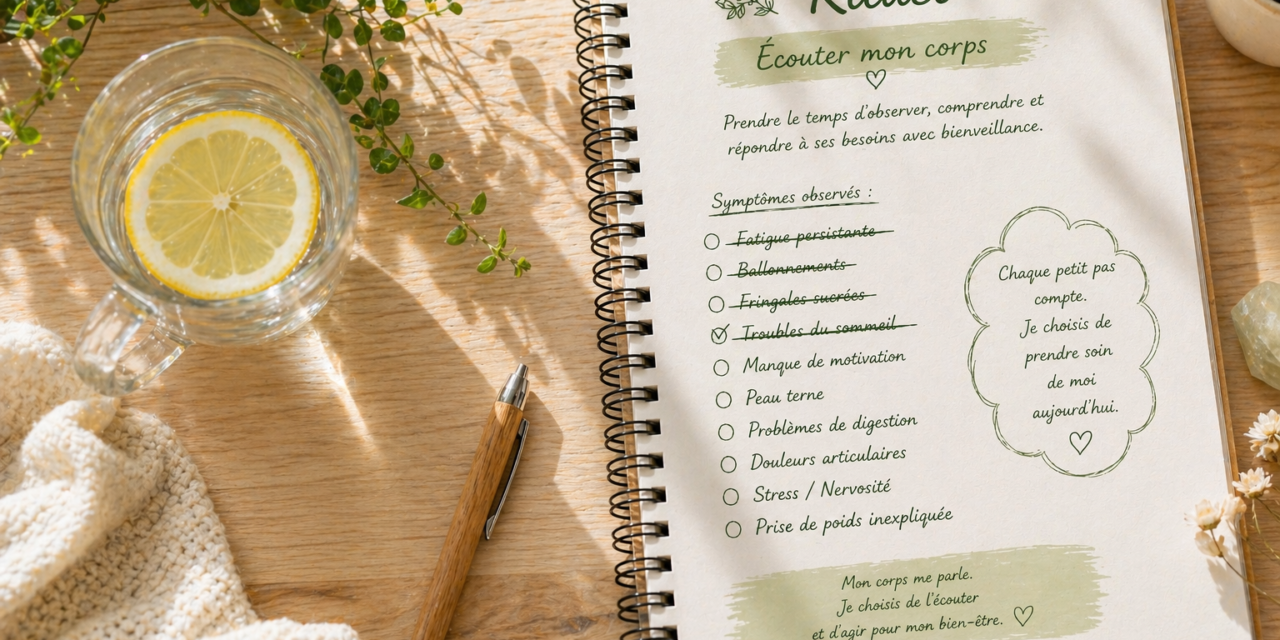 Écouter mon corps
Prendre le temps d'observer, comprendre et
répondre à ses besoins avec bienveillance.
Symptômes observés :
Fatigue persistante
Ballonnements
Fringales sucrées
Troubles du sommeil
Manque de motivation
Peau terne
Problèmes de digestion
Douleurs articulaires
Stress / Nervosité
Prise de poids inexpliquée
Chaque petit pas
compte.
Je choisis de
prendre soin
de moi
aujourd'hui.
Mon corps me parle.
Je choisis de l'écouter
et d'agir pour mon bien-être.